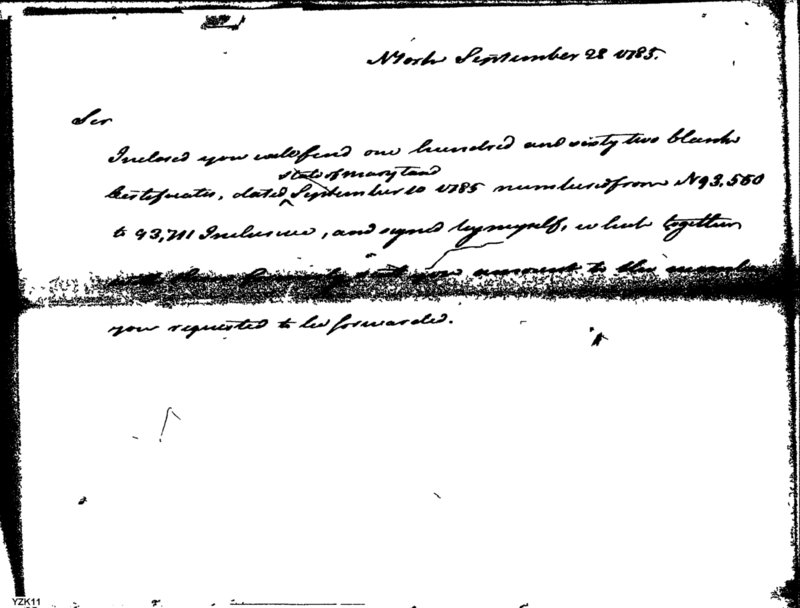 N York September 28 1785.
Sir
Inclosed you will find one hundred and sixty two blank
state of maryland
Certificates, dated September 10 1785 numbered from N 93,550
to 93,711 Inclusive, and signed by myself, which together
with those formerly sent you amount to the number
you requested to be forwarded.
YZK11